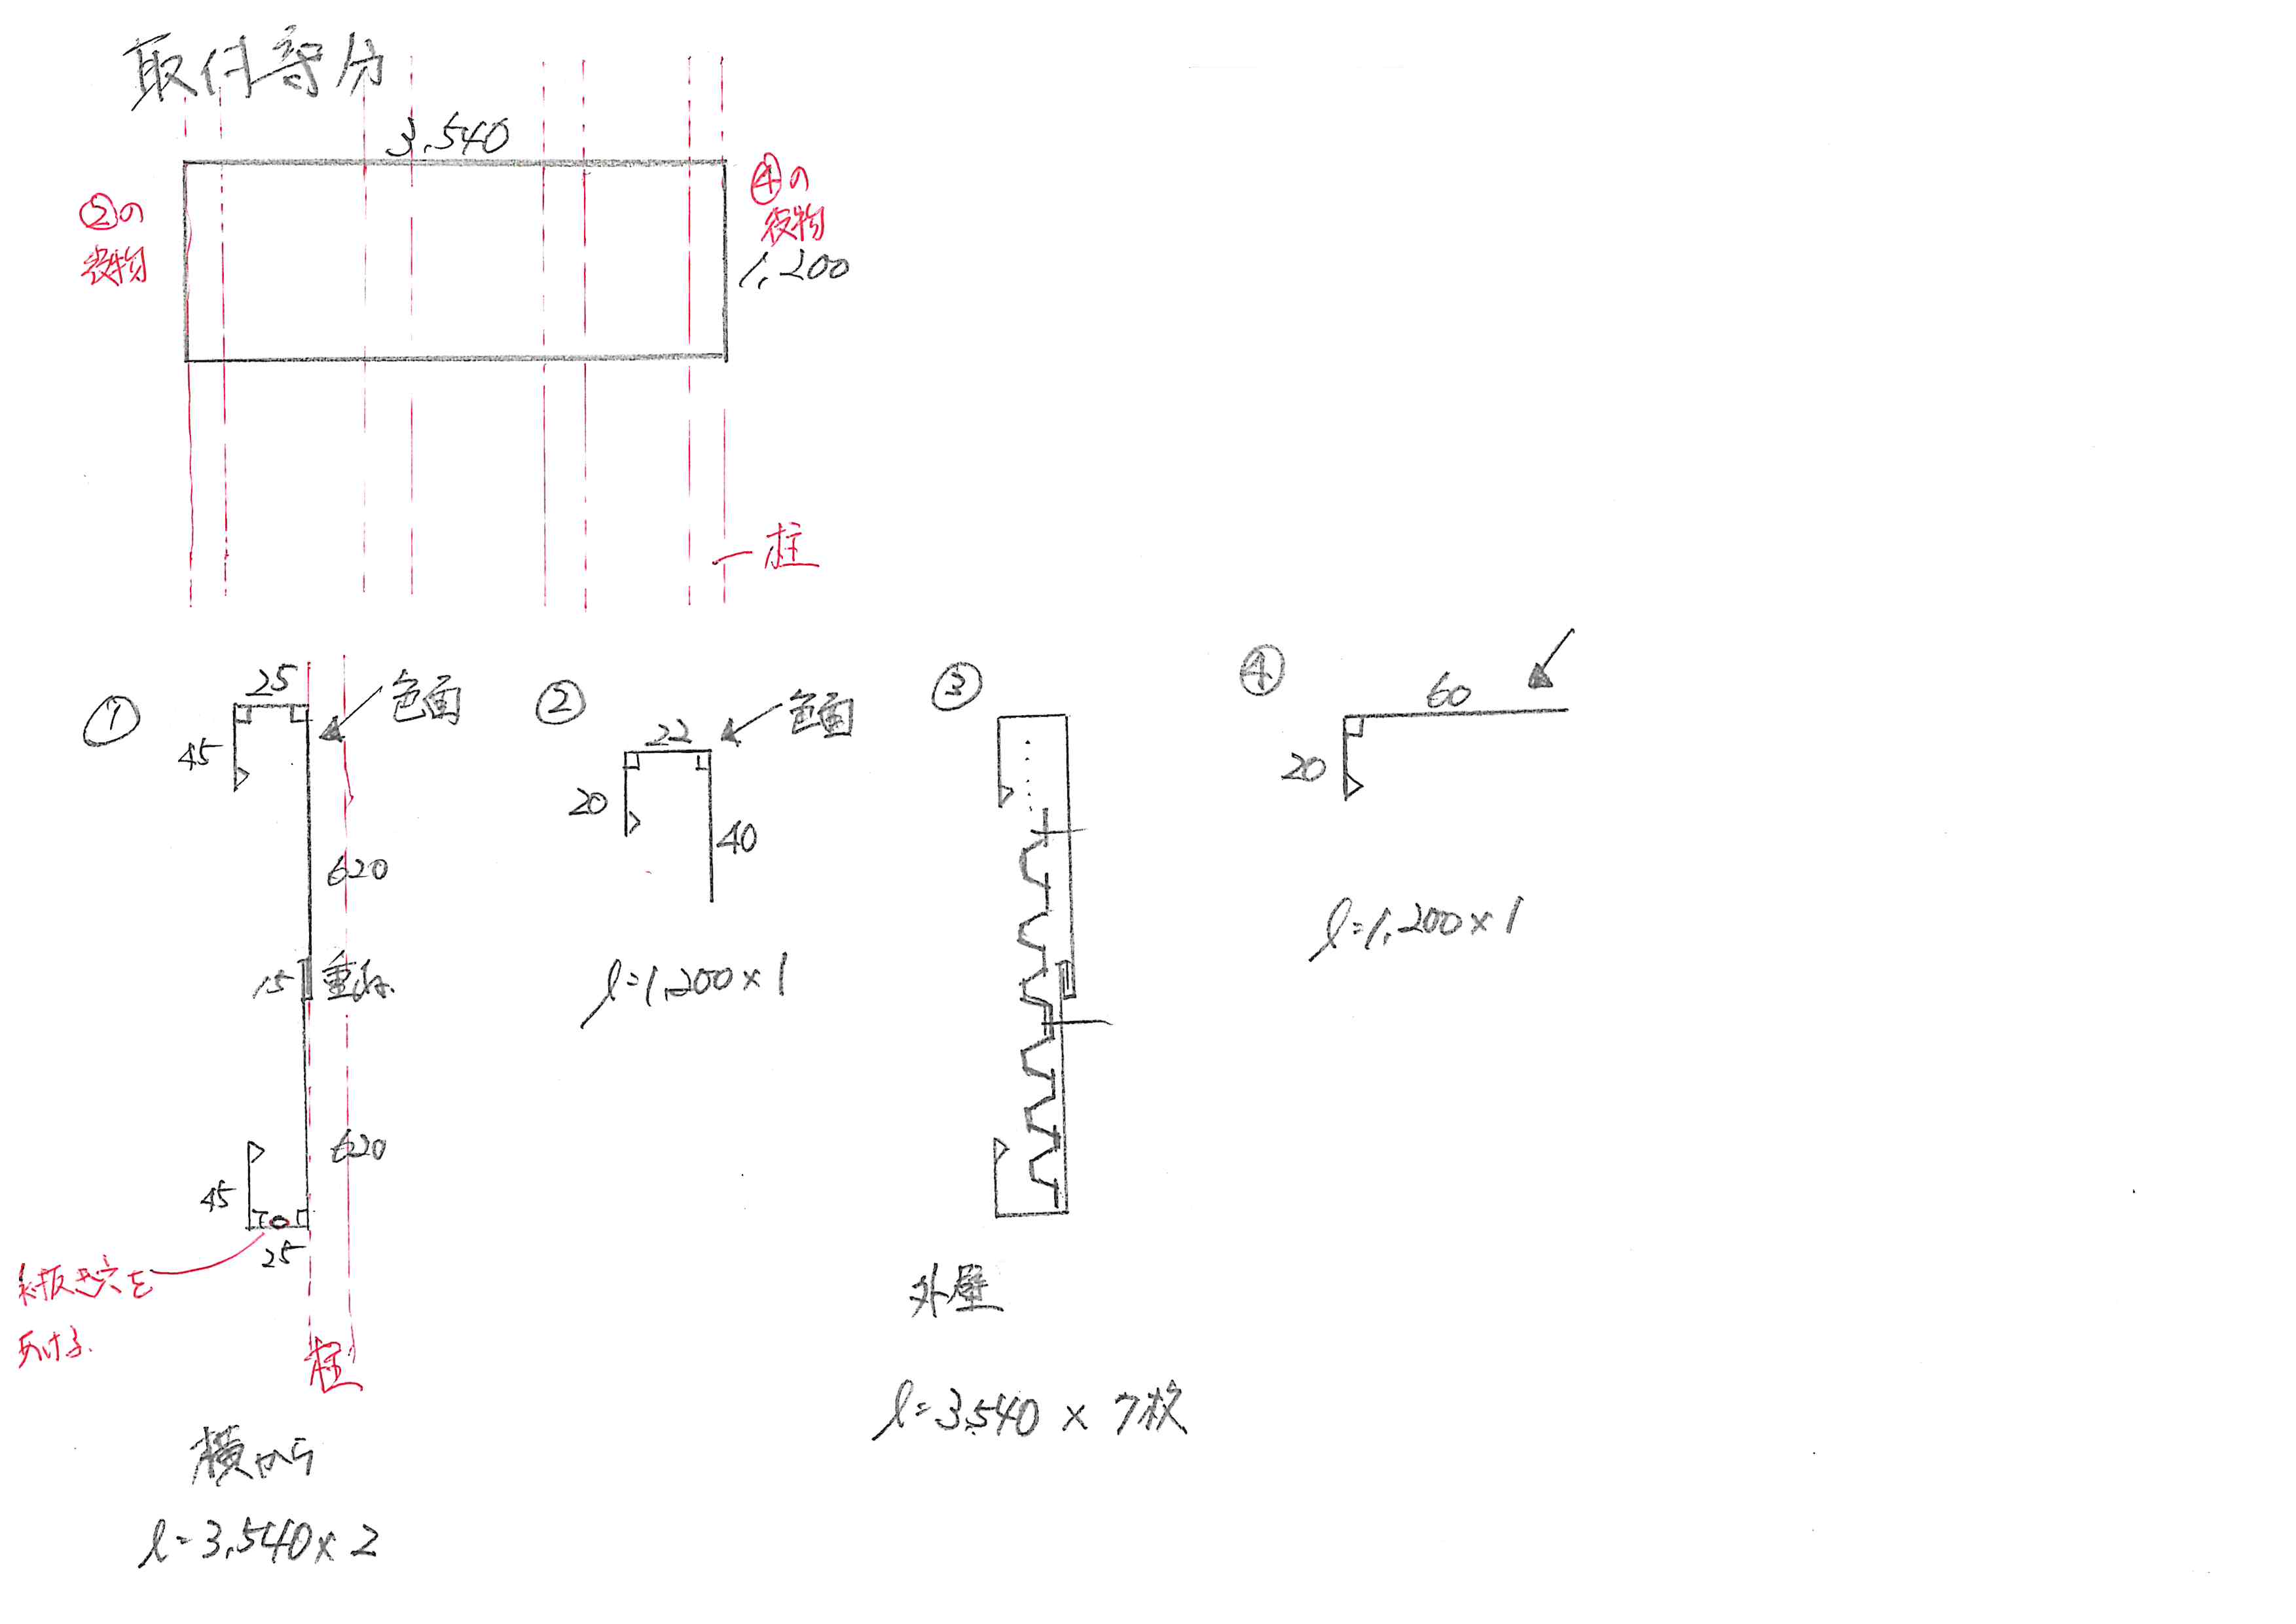 取付寄分
3.540
②の
役物
④の
役物
1,200
柱
①
25
色面
45
620
15
重ね
620
45
25
水抜き穴を
あける.
柱
横から
l=3,540×2
②
22
色面
20
40
l=1,200×1
③
外壁
l=3,540 × 7枚
④
60
20
l=1,200×1